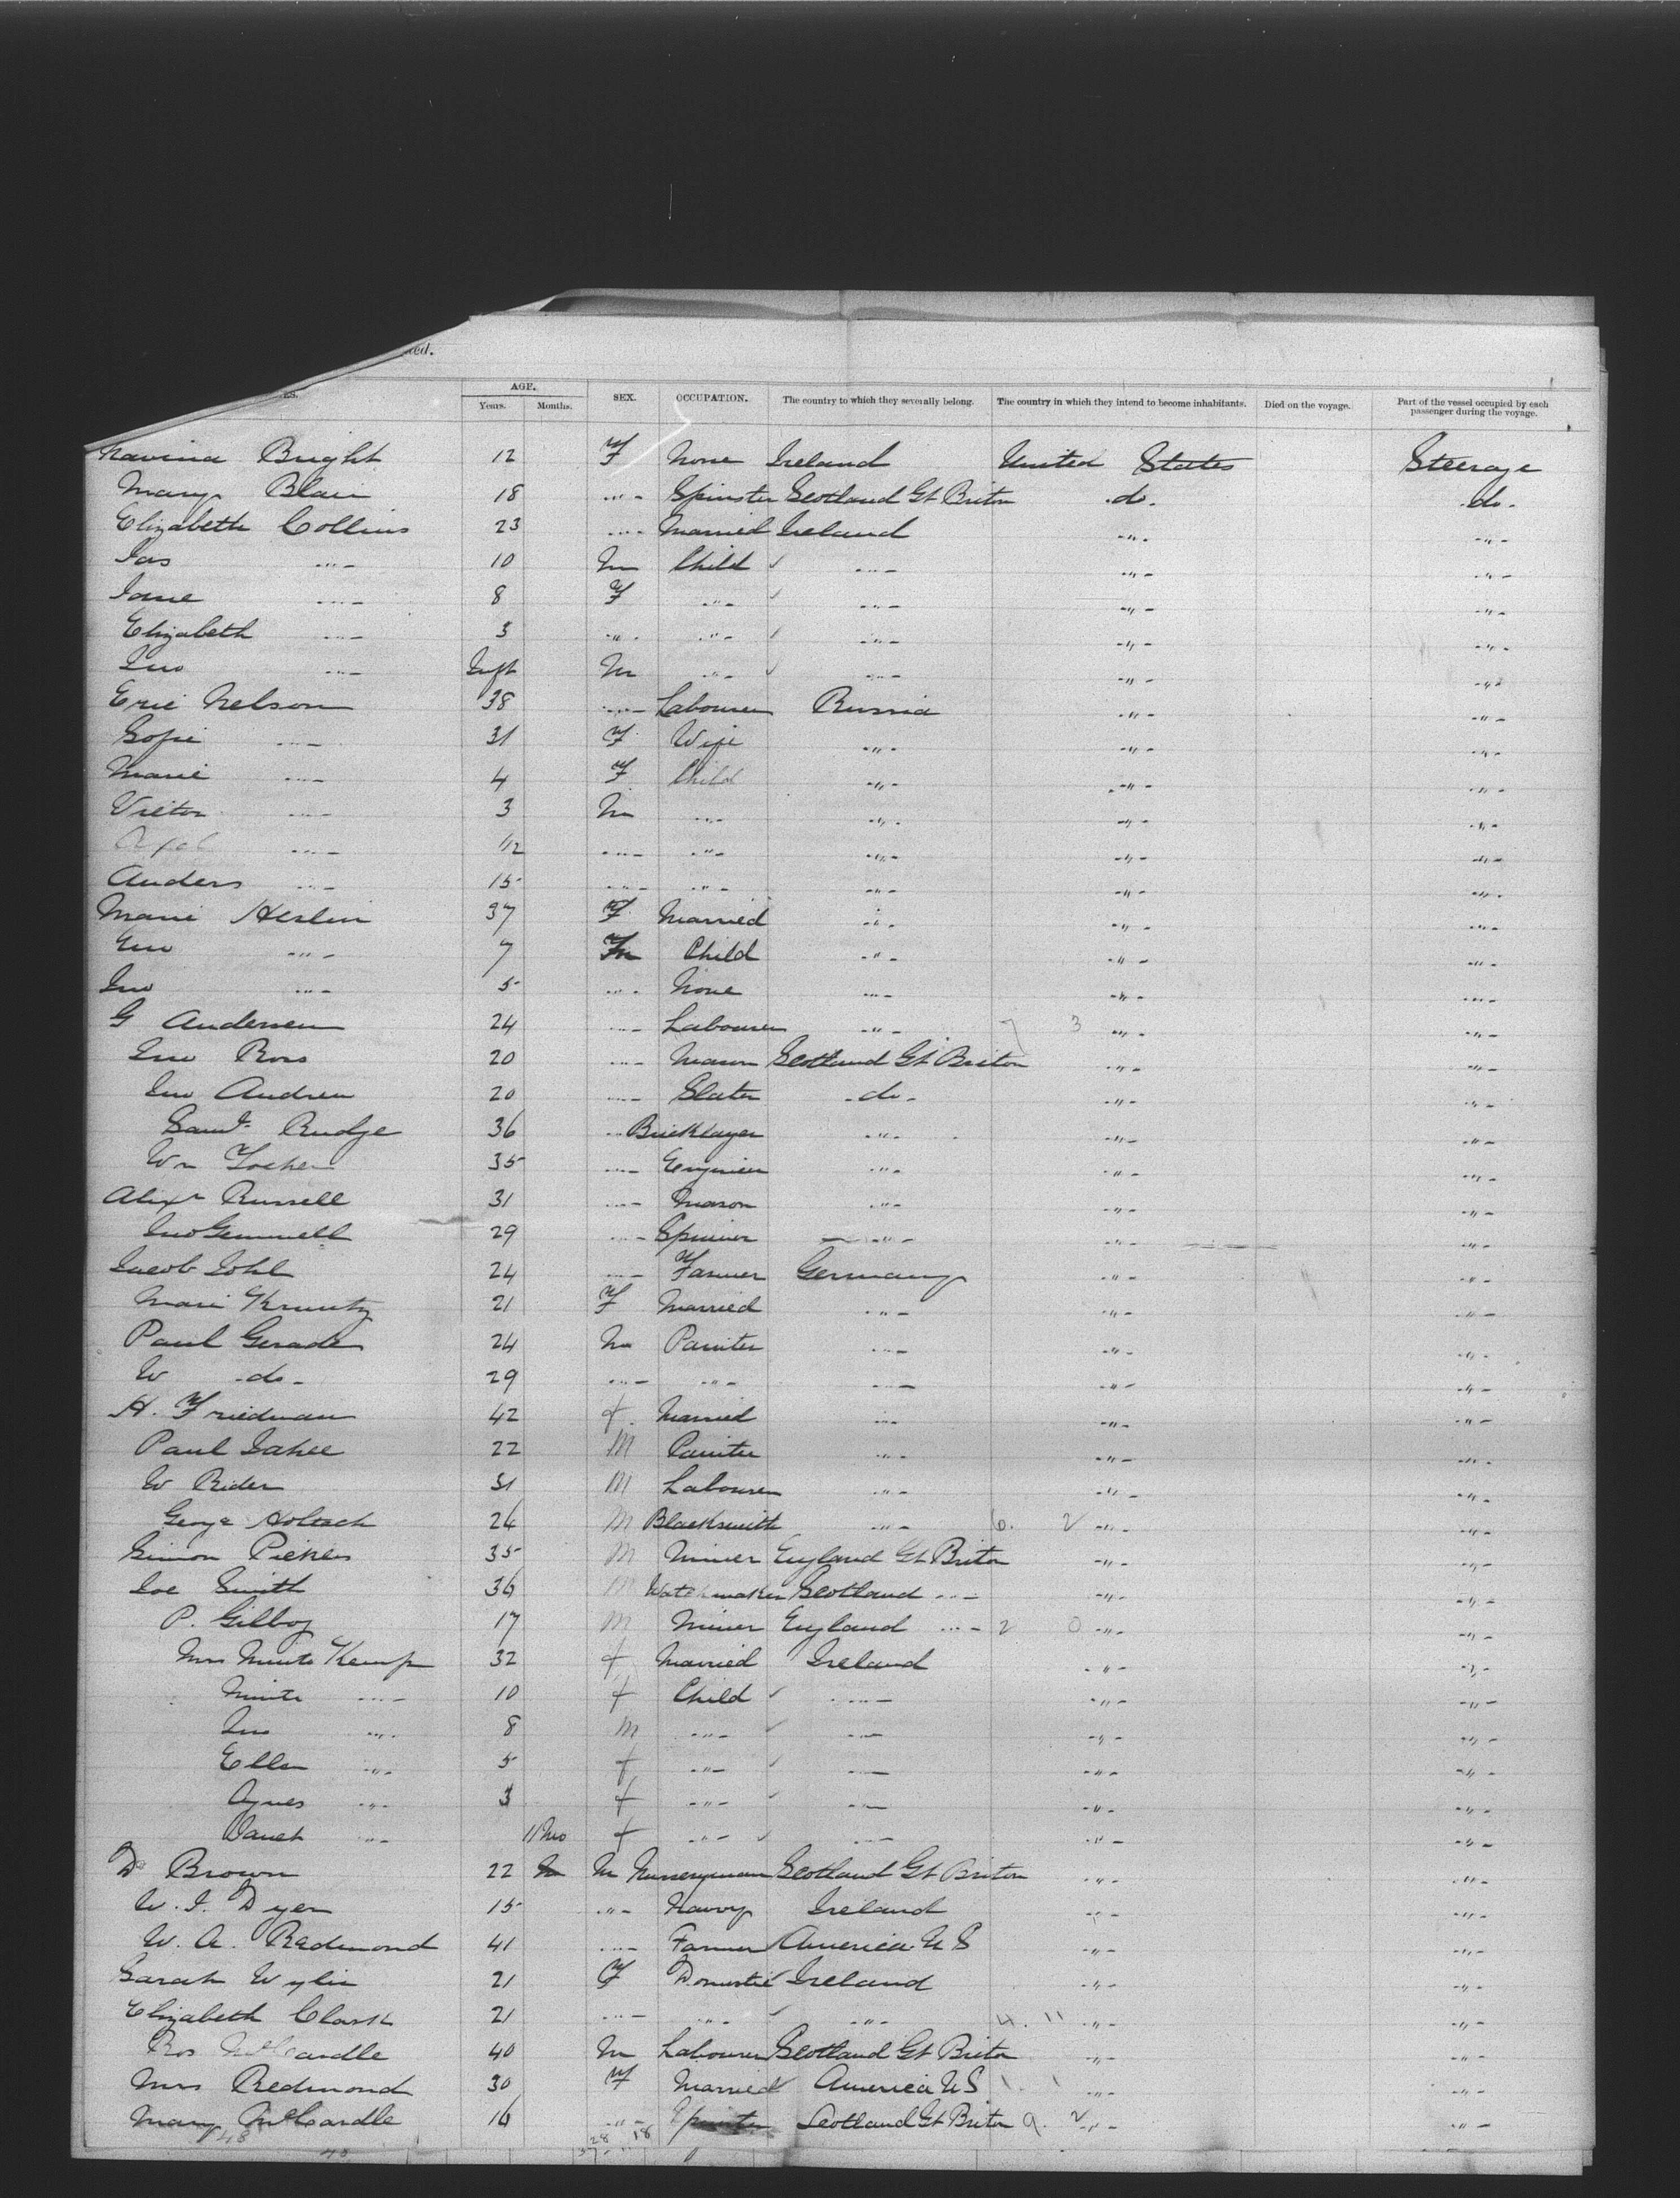 ed.
ES. AGE. SEX. OCCUPATION. The country to which they severally belong. The country in which they intend to become inhabitants. Died on the voyage. Part of the vessel occupied by each passenger during the voyage.
Years. Months.
Lavinia Bright 12 F None Ireland United States Steerage
Mary Blair 18 " Spinster Scotland Gt Briton do. do.
Elizabeth Collins 23 " Married Ireland " "
Jas " 10 M Child " " "
Jane " 8 F " " " "
Elizabeth " 3 " " " " "
Jno " Inft M " " " "
Eric Nelson 38 " Labourer Russia " "
Sofie " 31 F Wife " " "
Marie " 4 F Child " " "
Victor " 3 M " " " "
Axel " 1/2 " " " " "
Anders " 15 " " " " "
Marie Heslin 37 F Married " " "
" 7 M Child " " "
Jno " 5 " None " " "
G Andersen 24 " Labourer " 7 3 " "
Jno Ross 20 " Mason Scotland Gt Briton " "
Jno Andrew 20 " Slater do. " "
Saml. Rudge 36 " Bricklayer " " "
Wm 35 " Engineer " " "
Alexr Russell 31 " Mason " " "
Jno Gemmell 29 " Spinner " " "
Jacob Johl 24 " Farmer Germany " "
Marie Kruntz 21 F Married " " "
Paul Gerade 24 M Painter " " "
W do 29 " " " " "
H. Friedman 42 f Married " " "
Paul 22 M Painter " " "
W Rider 31 M Labourer " " "
George 26 M Blacksmith " 6. 2 " "
Simon Pickles 35 M Miner England Gt Briton " "
Joe Smith 36 M Watchmaker Scotland " " "
P. Gilboy 17 M Miner England " 2 0 " "
Mrs Kemp 32 f Married Ireland " "
" 10 f Child " " "
Jno " 8 m " " " "
Ellen " 5 f " " " "
Agnes " 3 f " " " "
Janet " 11 Mo f " " " "
D Brown 22 M Nurseryman Scotland Gt Briton " "
W. J. Dyer 15 " Navvy Ireland " "
W. A. Redmond 41 " Farmer America U S " "
Sarah Wylie 21 F Domestic Ireland " "
Elizabeth Clark 21 " " " 4. 11 " "
Ros McCardle 40 M Labourer Scotland Gt Briton " "
Mrs Redmond 30 F Married America U S 1. 1 " "
Mary McCardle 16 " Spinster Scotland Gt Briton 9. 2 " "
48 28 18